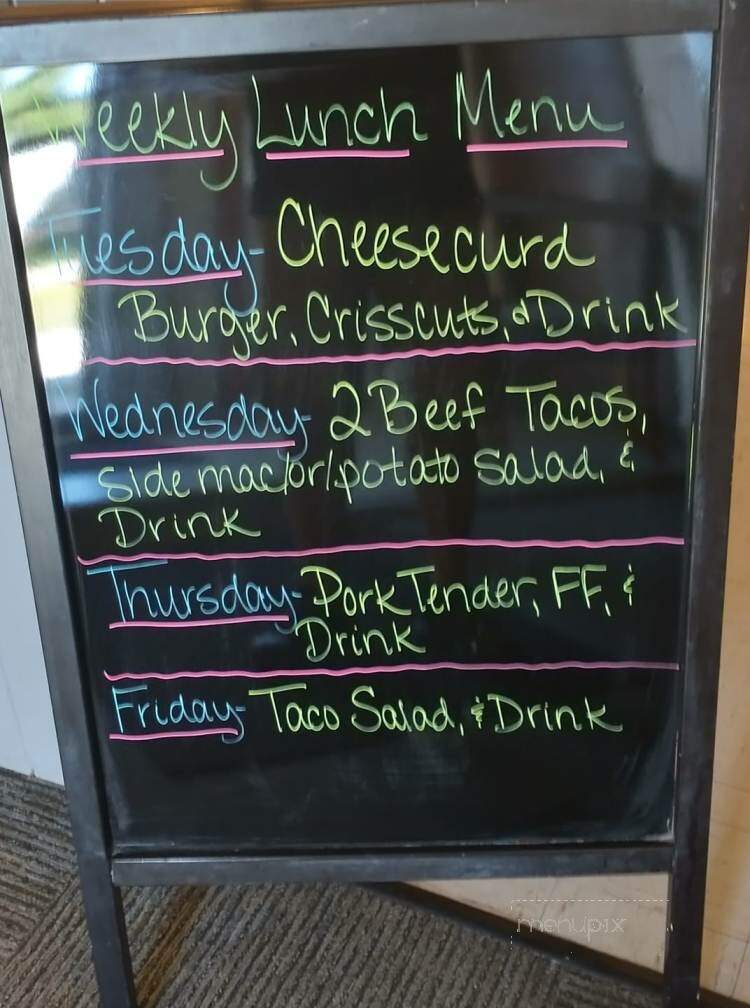 Weekly Lunch Menu
Tuesday- Cheesecurd
Burger, Crisscuts, & Drink
Wednesday- 2 Beef Tacos,
side mac/or/potato salad, &
Drink
Thursday- Pork Tender, FF, &
Drink
Friday- Taco Salad, & Drink
menupix